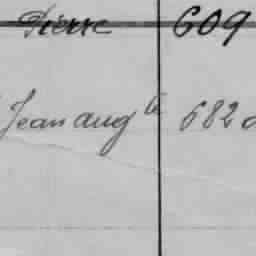 Pierre 609
Jean aug te 682